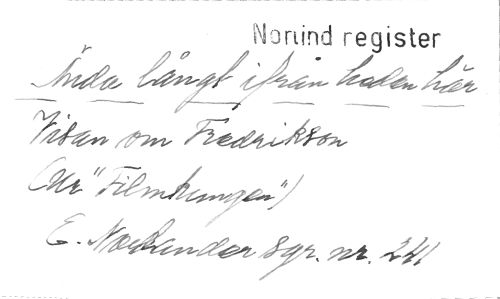 Norlind register
Ända långt ifrån heden här
Visan om Fredrikson
(Ur "Filmkungen")
E. Norlander sgr. nr. 241